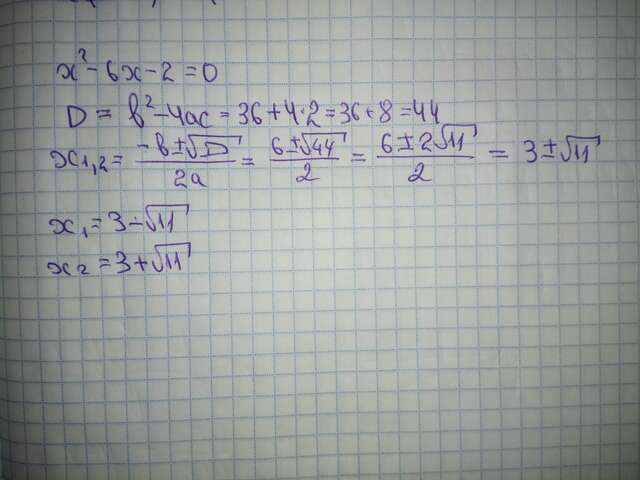 x² - 6x - 2 = 0
D = b² - 4ac = 36 + 4·2 = 36 + 8 = 44
x₁,₂ = (-b ± √D)/2a = (6 ± √44)/2 = (6 ± 2√11)/2 = 3 ± √11
x₁ = 3 - √11
x₂ = 3 + √11